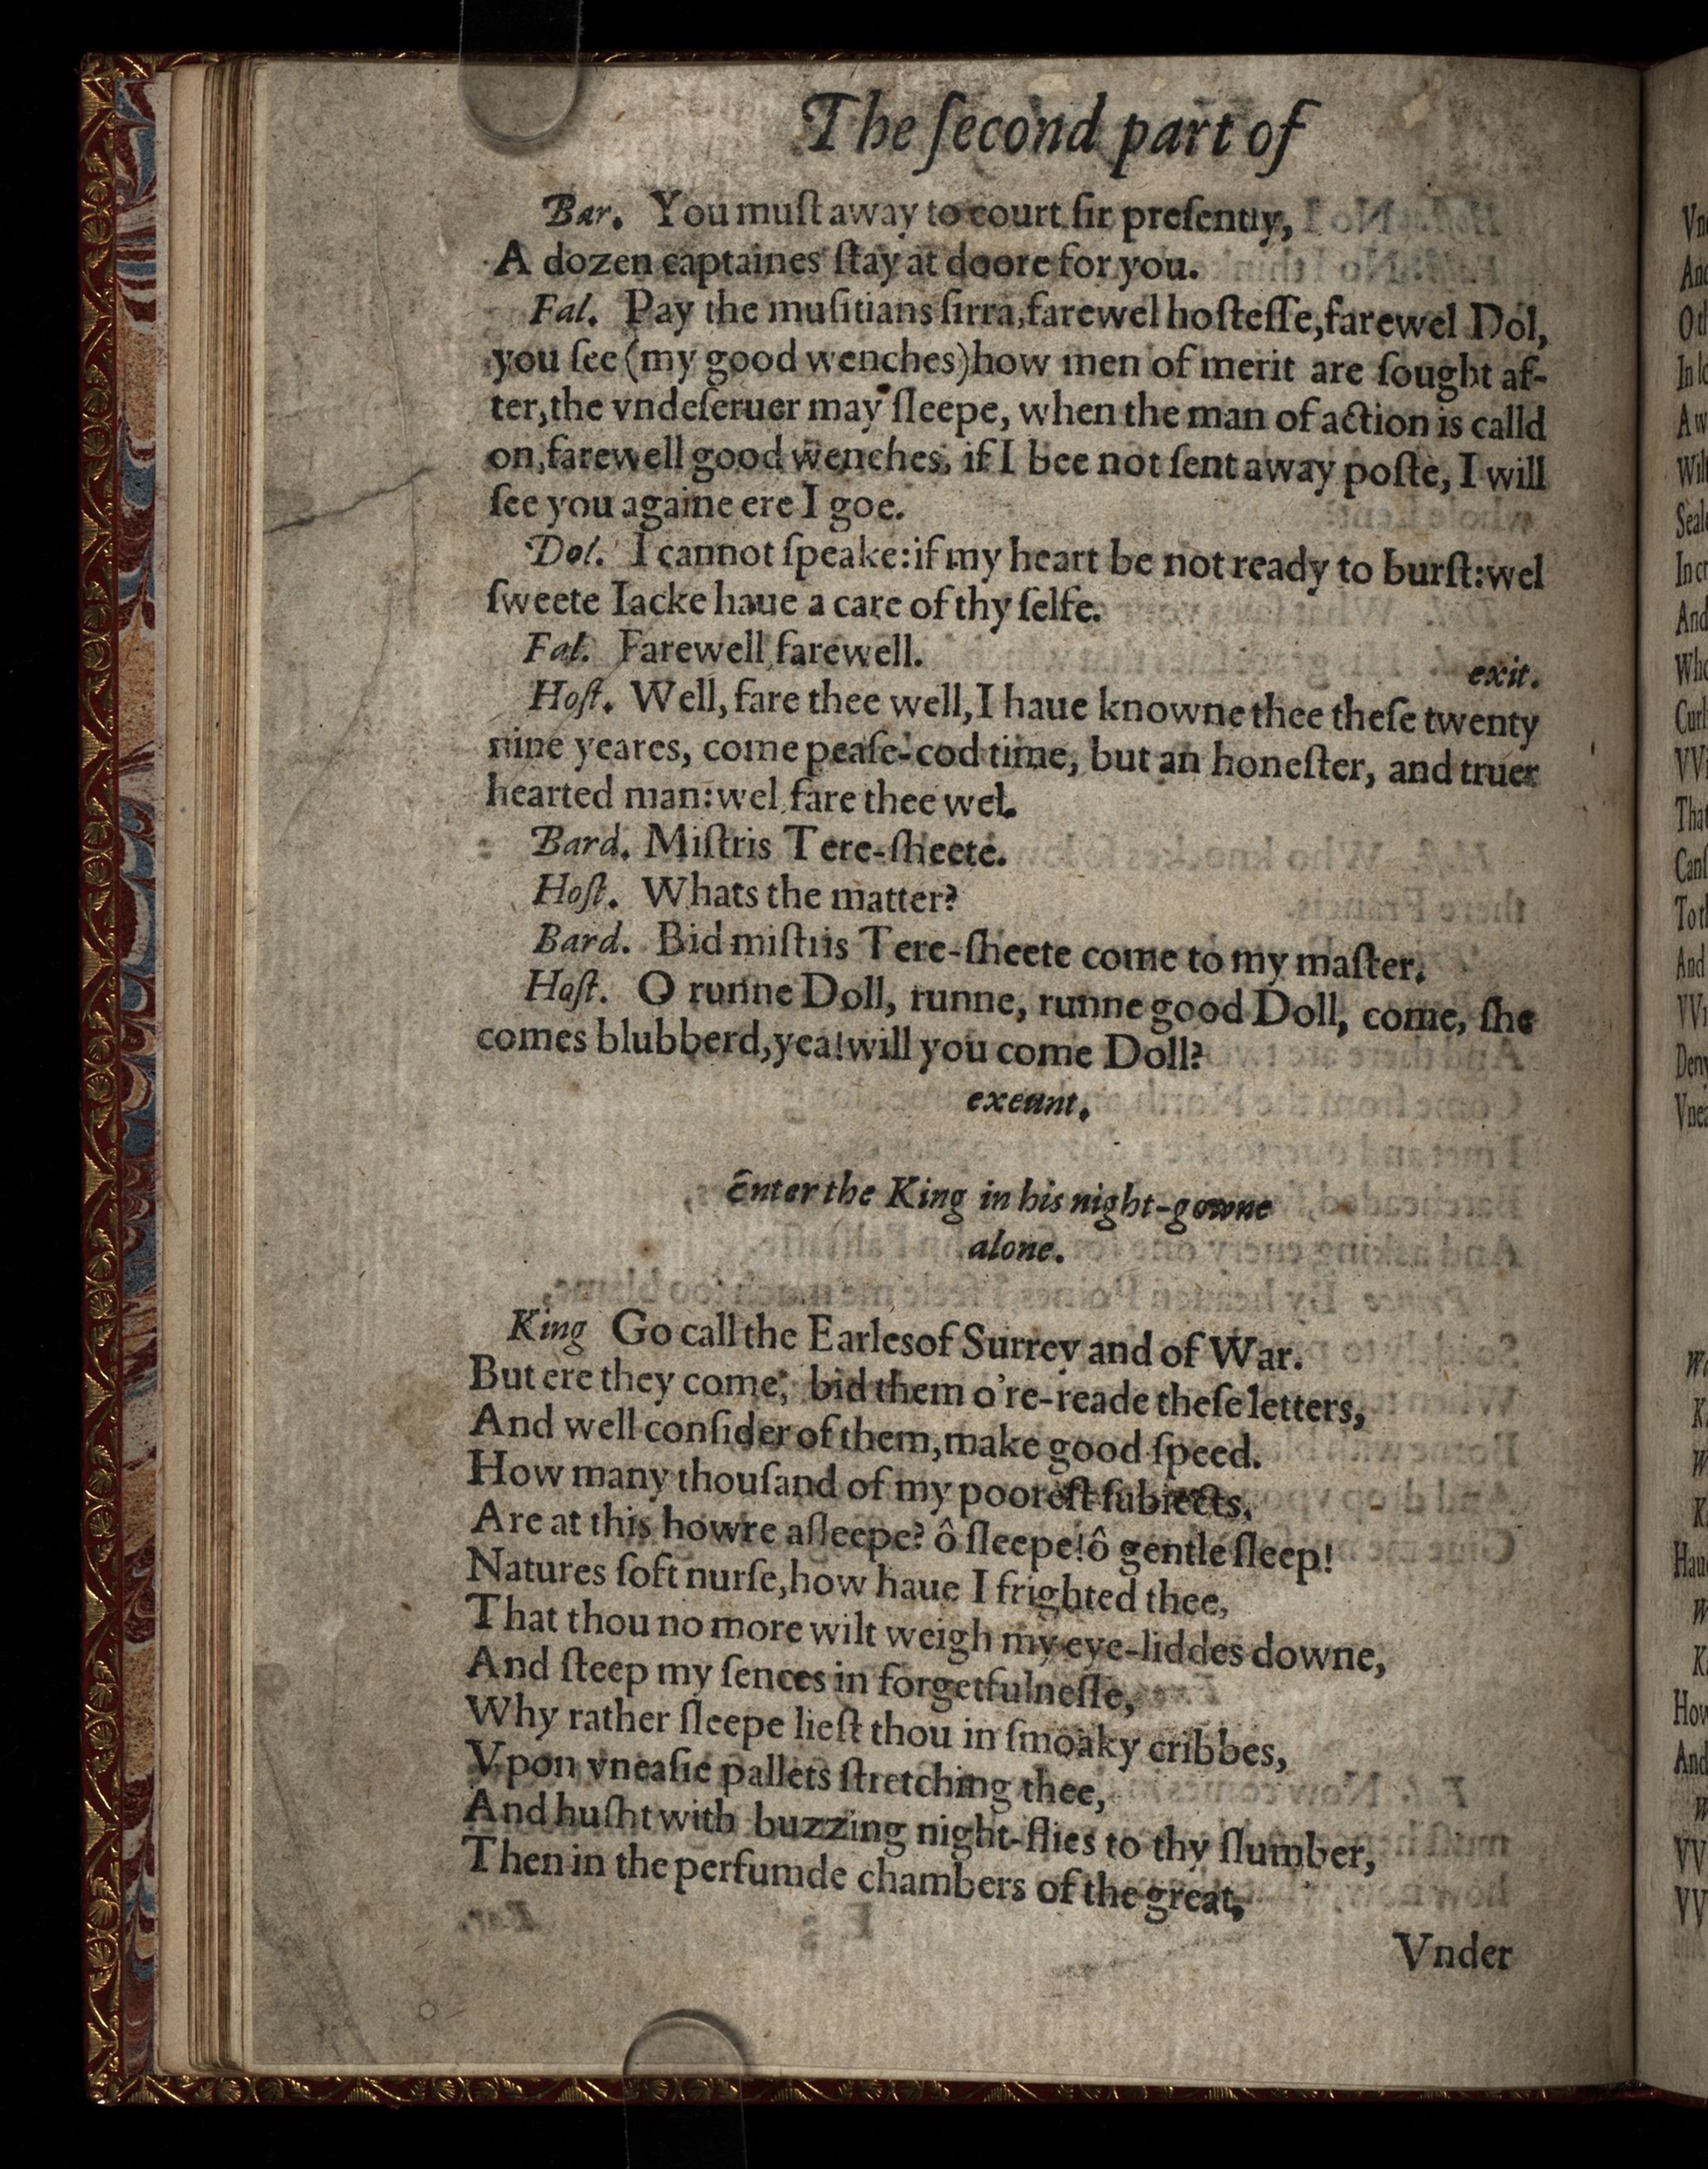 The ſecond part of
Bar. You muſt away to court ſir preſently,
A dozen captaines ſtay at doore for you.
Fal. Pay the muſitians ſirra, farewel hoſteſſe, farewel Dol,
you ſee (my good wenches) how men of merit are ſought af-
ter, the vndeſeruer may ſleepe, when the man of action is calld
on, farewell good wenches, if I bee not ſent away poſte, I will
ſee you againe ere I goe.
Dol. I cannot ſpeake: if my heart be not ready to burſt: wel
ſweete Iacke haue a care of thy ſelfe.
Fal. Farewell farewell.
exit.
Hoſt. Well, fare thee well, I haue knowne thee theſe twenty
nine yeares, come peaſe-cod time, but an honeſter, and truer
hearted man: wel fare thee wel.
Bard. Miſtris Tere-ſheete.
Hoſt. Whats the matter?
Bard. Bid miſtris Tere-ſheete come to my maſter.
Hoſt. O runne Doll, runne, runne good Doll, come, ſhe
comes blubberd, yea! will you come Doll?
exeunt.
Enter the King in his night-gowne
alone.
King Go call the Earles of Surrey and of War.
But ere they come, bid them o're-reade theſe letters,
And well conſider of them, make good ſpeed.
How many thouſand of my pooreſt ſubiects,
Are at this howre aſleepe? ô ſleepe! ô gentle ſleep!
Natures ſoft nurſe, how haue I frighted thee,
That thou no more wilt weigh my eye-liddes downe,
And ſteep my ſences in forgetfulneſſe,
Why rather ſleepe lieſt thou in ſmoaky cribbes,
Vpon vneaſie pallets ſtretching thee,
And huſht with buzzing night-flies to thy ſlumber,
Then in the perfumde chambers of the great,
Vnder